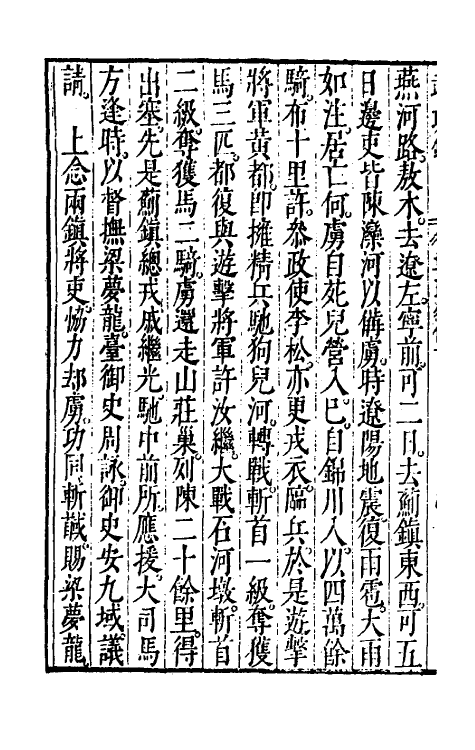 燕河路。敖木。去遼左。寧前。可二日。去薊鎮東西。可五
日。邊吏皆陳灤河以備虜。時遼陽地震。復雨雹。大雨
如注。居亡何。虜自死兒營入。巳。自錦川入。以四萬餘
騎。布十里許。叅政使李松。亦更戎衣。臨兵。於是遊擊
將軍黃都。卽擁精兵。馳狗兒河。轉戰。斬首一級。奪獲
馬三匹。都復與遊擊將軍許汝繼。大戰石河墩。斬首
二級。奪獲馬二騎。虜還走山莊巢。列陳二十餘里。得
出塞。先是薊鎮總戎戚繼光。馳中前所。應援。大司馬
方逢時。以督撫梁夢龍。臺御史周詠。御史安九域議
請。上念兩鎮將吏。恊力却虜。功同斬馘。賜梁夢龍